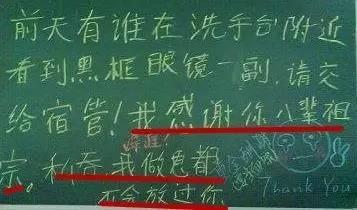 前天有谁在洗手台附近
看到黑框眼镜一副，请交
给宿管！我感谢你八辈祖
宗。私吞我做鬼都
不会放过你
Thank You